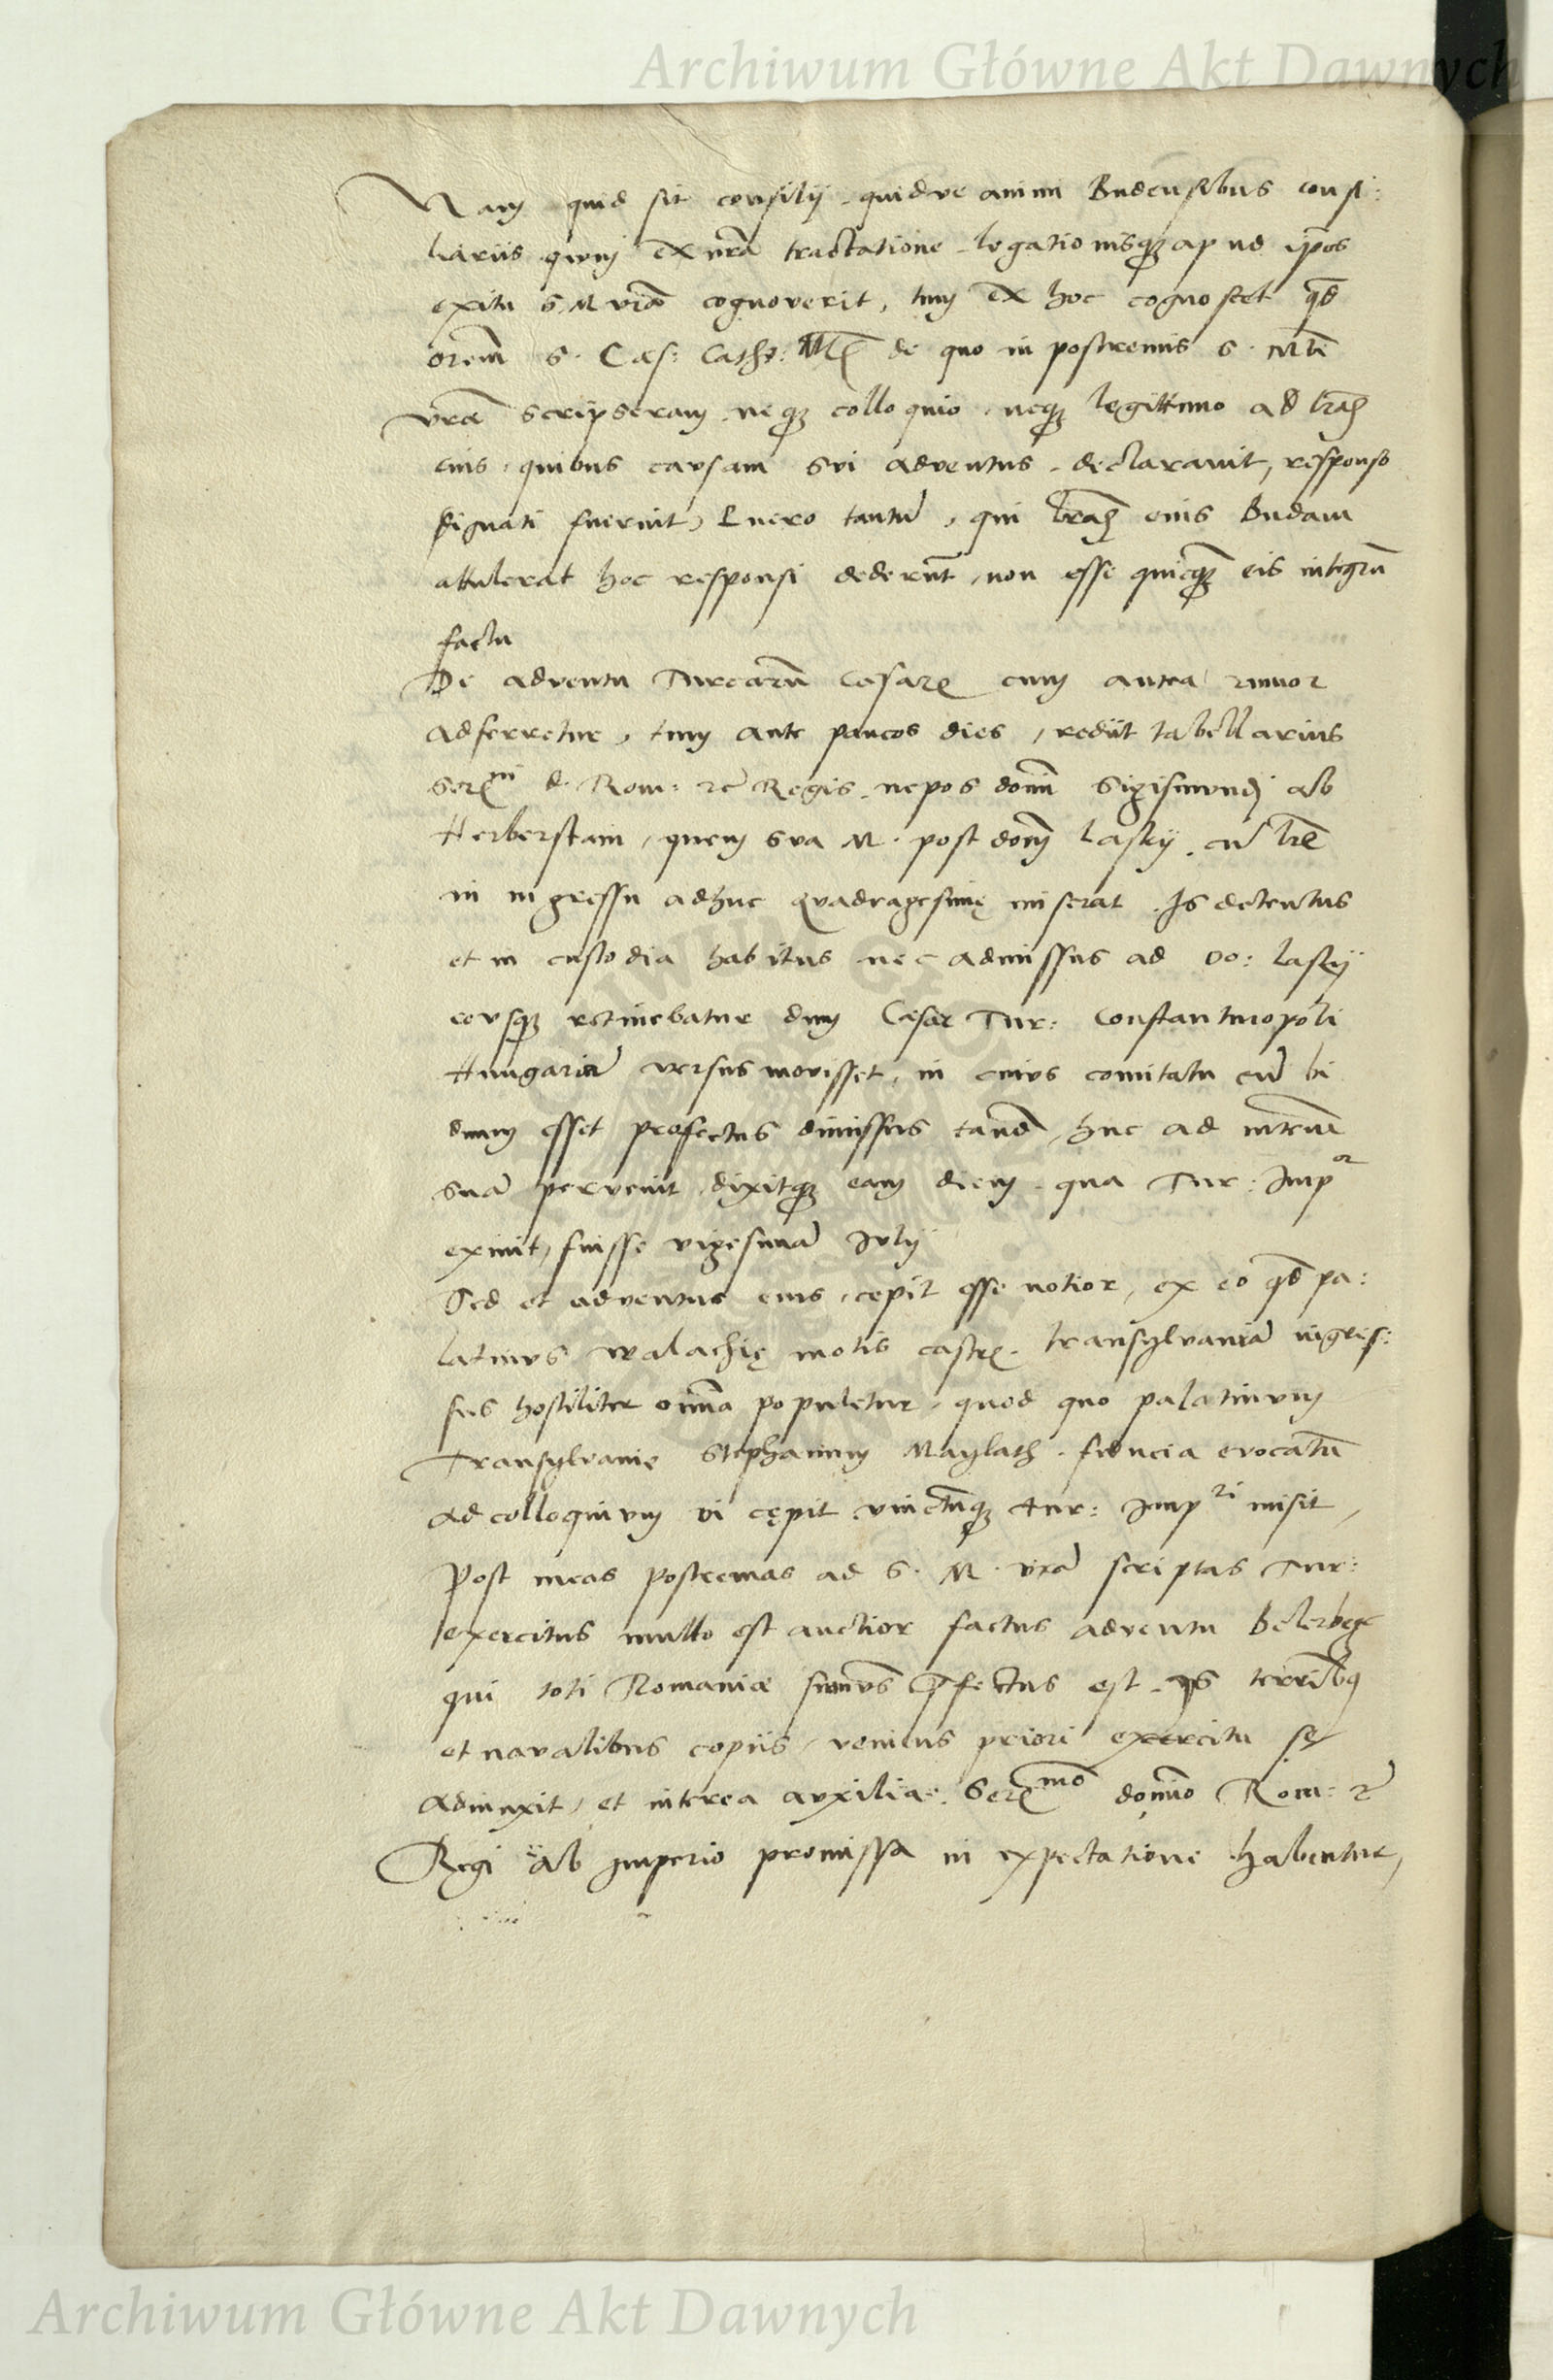 Archiwum Główne Akt Dawnych
Nam quid sit consilij, quidve animi Budensibus consi:
liariis quum ex nrã tractatione legationisq; apud ipos
exitu S. M. vrã cognoverit, tum ex hoc cognoscet qđ
orem S. Cæs: Cath: Mtis de quo in postremis S. Mti
vræ scripseram, neq; colloquio, neq; legittimo ad lras
eius, quibus causam sui adventus declaravit, responso
dignati fuerint, puero tantũ, qui lras eius Budam
attulerat hoc responsi dederũt, non esse quicq; eis integrũ
factu
De adventu Turcarũ Cesaris cum antea rumor
adferretur, tum ante paucos dies, rediit tabellarius
Sermi d. Rom: rc Regis, nepos domi Sigismundi ab
Herberstain, quem sua M. post dom Lasky, cũ lris
in ingressu adhuc quadragesimę miserat. Is detentus
et in custodia habitus nec admissus ad do: Lasky
eousq; retinebatur dum Cæsar Tur: Constantinopoli
Hungariã versus movisset, in cuius comitatu cũ bi
duum esset profectus dimissus tandẽ, huc ad
suã pervenit, dixitq; eam diem, qua Tur: Impor
exivit, fuisse vigesimã Julij
Sed et adventus eius, cepit esse notior, ex eo qđ pa:
latinus Walachię motis castris Transylvaniã ingres:
sus hostiliter omĩa populetur, quod quo palatinum
Transylvanię Stephanum Maylath, fiducia evocatũ
ad colloquium vi cępit, vinctũq; Tur: Impri misit,
Post meas postremas ad S. M. vrã scriptas Tur:
exercitus multo est auctior factus adventu belerbege
qui toti Romaniæ sum̃us p̃fectus est, is terrĩbq
et navalibus copiis, veniens priori exercitu se
adiunxit, et interea auxilia Sermo domĩo Rom: rc
Regi ab Imperio promissa in expectatione habentur,
Archiwum Główne Akt Dawnych